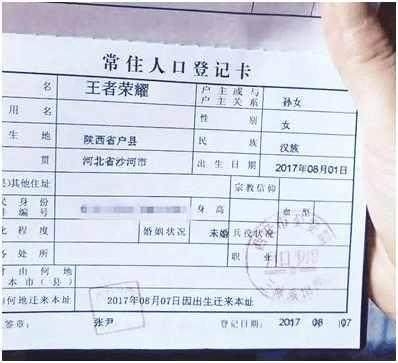 常住人口登记卡
名 王者荣耀 户主或与户主关系 孙女
用名 性别 女
生地 陕西省户县 民族 汉族
贯 河北省沙河市 出生日期 2017年08月01日
其他住址 宗教信仰
身份 身高 血型
件编号
化程度 婚姻状况 未婚 兵役状况
务处所 职业
由何地
本市(县)
何地迁来本址 2017年08月07日因出生迁来本址
签章: 张尹 登记日期: 2017 08 07